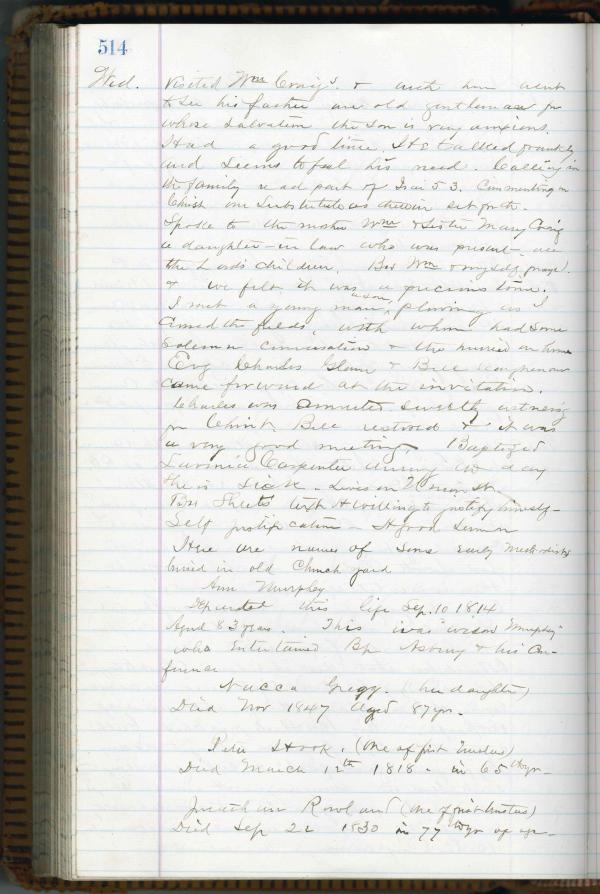 514
Wed. Visited Wm Craig's & with him went
to see his father an old gentleman for
whose salvation the son is very anxious.
Had a good time. He talked frankly
and seems to feel his need. Calling in
the family read part of Isai 53. Commenting on
Christ our Substitute as therein set forth.
Spoke to the mother Wm & Sister Mary Craig
a daughter-in law who was present all
the Lords children. Bro Wm & myself prayed.
& we felt it was a precious time.
I met a young man, plowing as I
crossed the fields, with whom had some
solemn conversation & the hurried on home
Evg Charles & Bill
came forward at the invitation.
Charles was converted sweetly witnessing
for Christ Bill restored & it was
a very good meeting. Baptized
Lavinia Carpenter during the day
She is sick. Lives on Union St.
Bro Sheets text Willing to justify himself-
Self justification - A good sermon
Here are names of some early Methodists
buried in old Church yard
Ann Murphy
Departed this life Sep. 10 1814
Aged 83 years. This was "widow Murphy"
who entertained Bp Asbury & his Con-
ference
Nacca Gregg. (her daughter)
Died Nov 1847 Aged 87 yrs.
Peter Hook. (One of first Trustees)
Died March 12th 1818 - in 65th yr-
Jonathan Rowland (One of first trustees)
Died Sep 22 1830 in 77th yr of age-